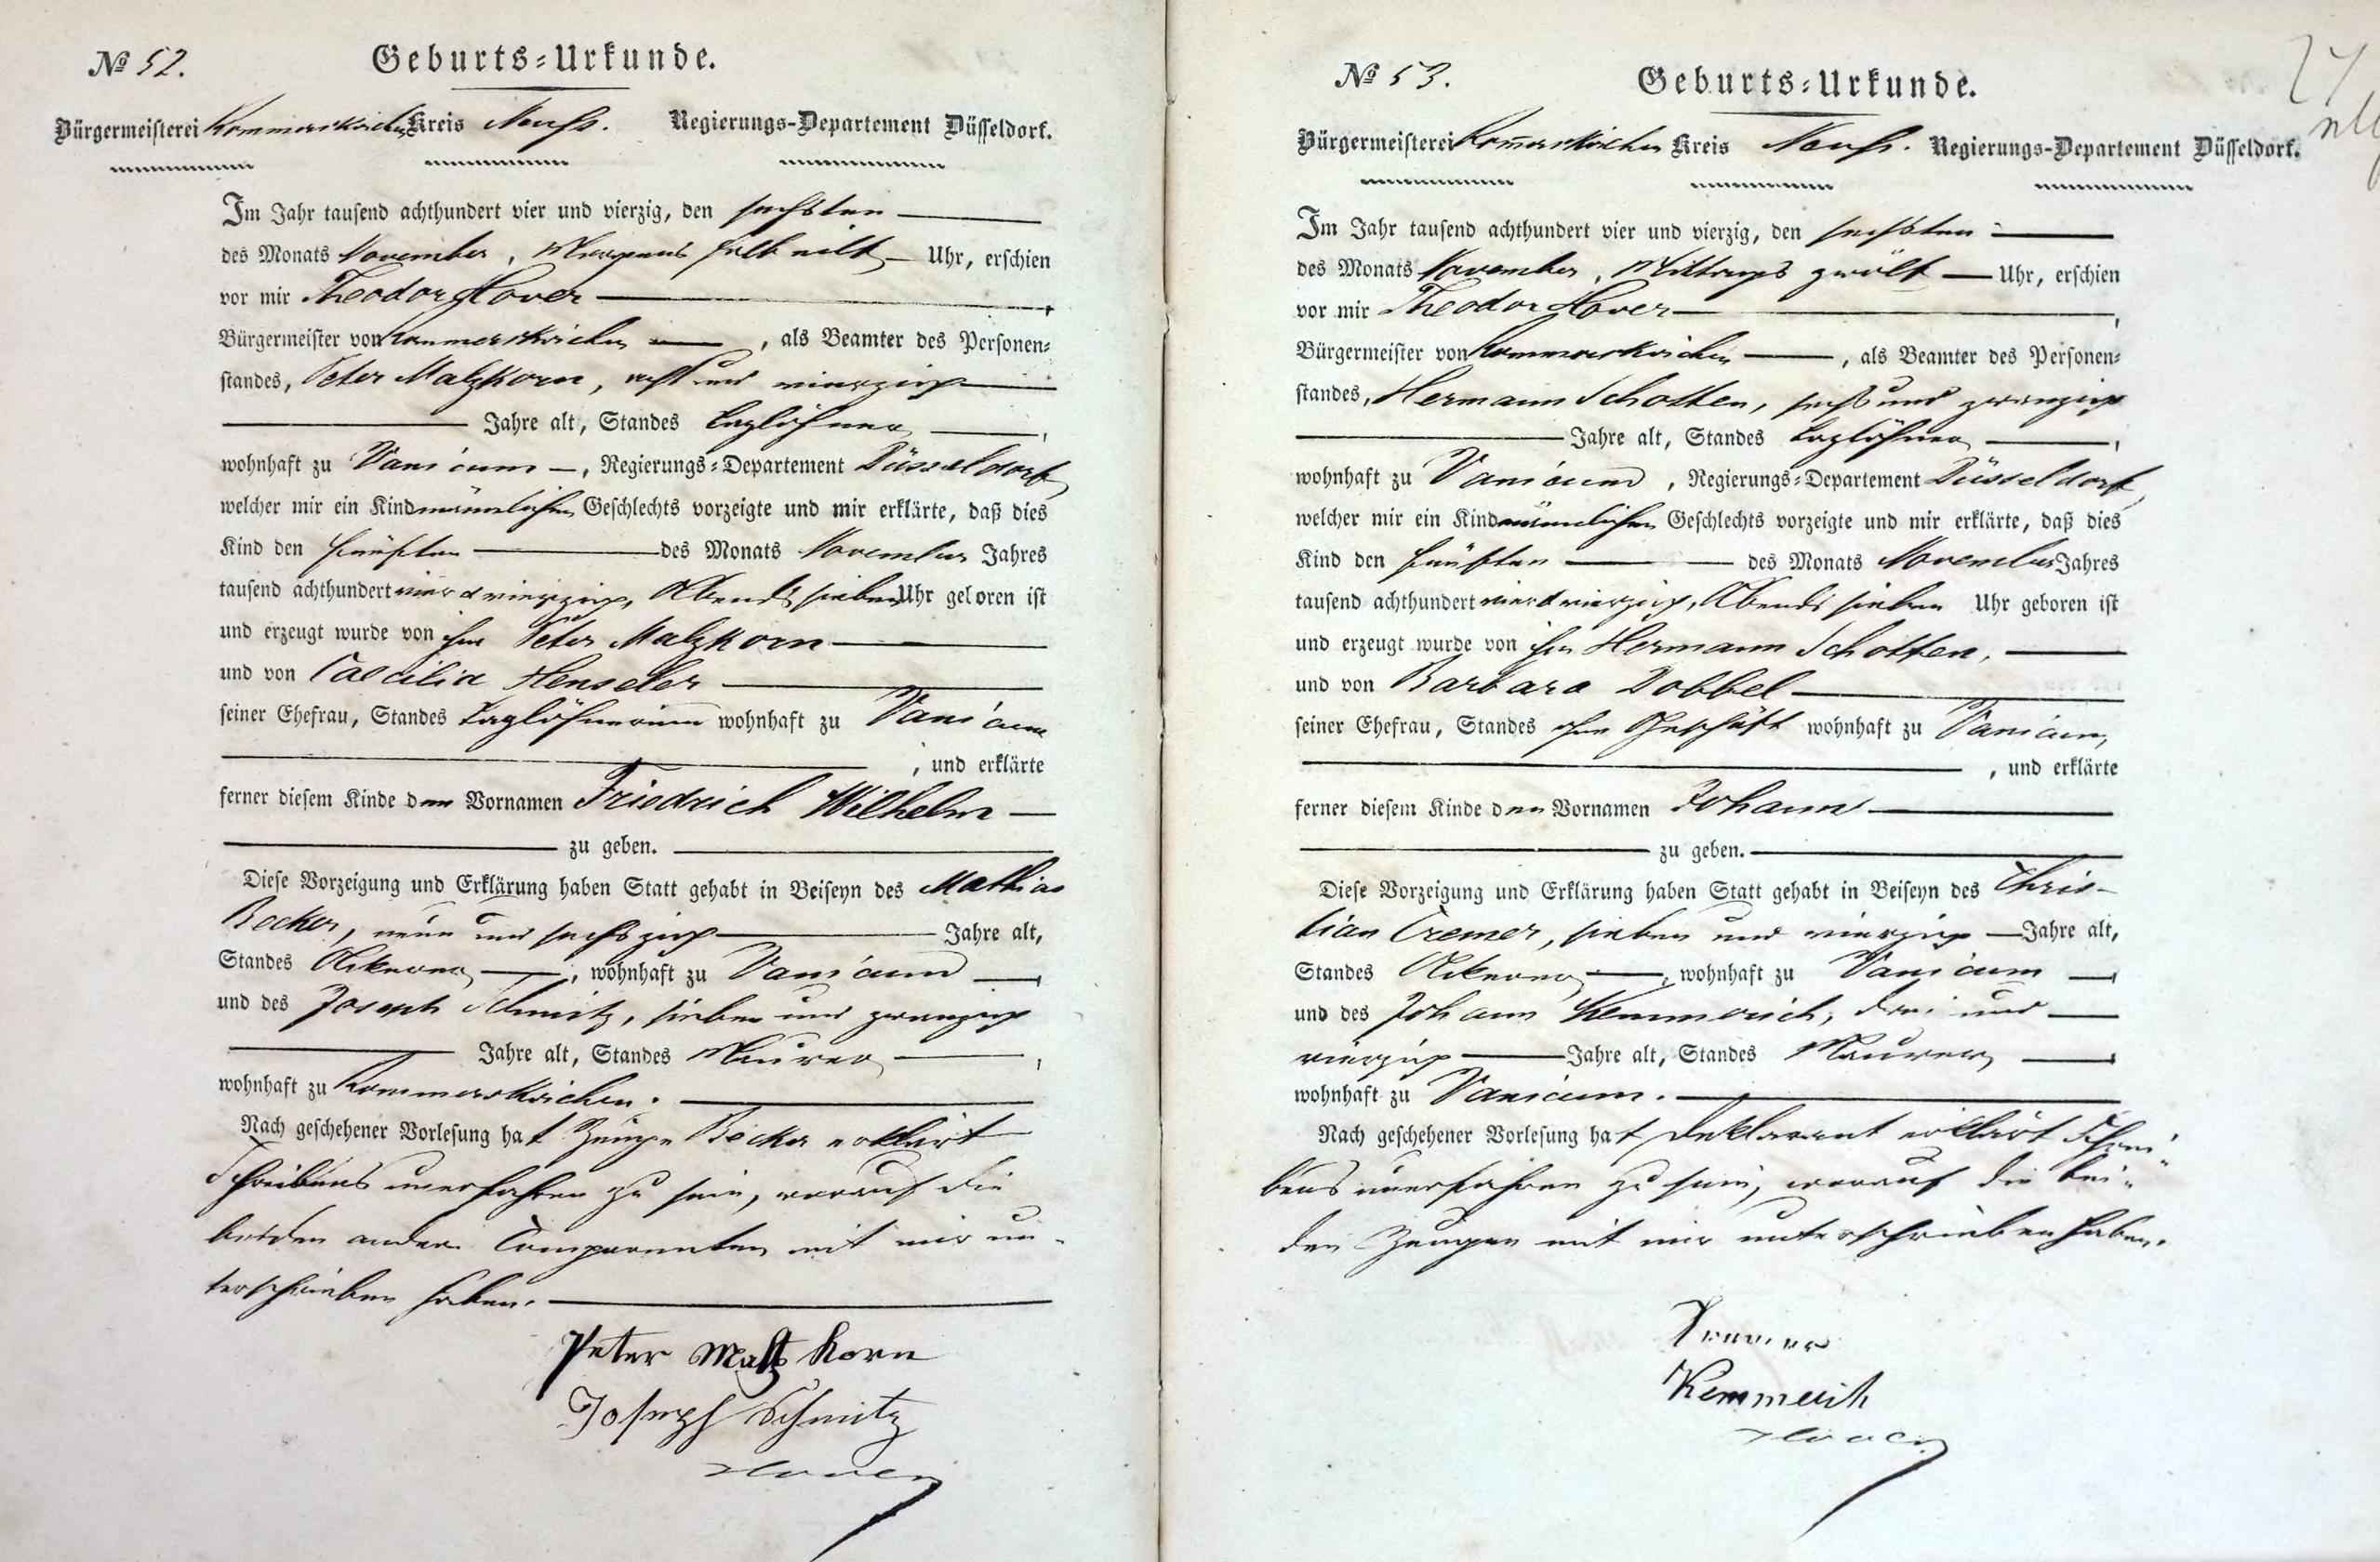 № 52.
Geburts-Urkunde.
Bürgermeisterei Rommerskirchen Kreis Neuß. Regierungs-Departement Düsseldorf.
Im Jahr tausend achthundert vier und vierzig, den sechsten
des Monats November, Morgens halb eilf Uhr, erschien
vor mir Theodor Hover,
Bürgermeister von Rommerskirchen, als Beamter des Personen-
standes, Peter Malzkorn, acht und vierzig
Jahre alt, Standes Taglöhner,
wohnhaft zu Vanicum, Regierungs-Departement Düsseldorf,
welcher mir ein Kind männlichen Geschlechts vorzeigte und mir erklärte, daß dies
Kind den fünften des Monats November Jahres
tausend achthundert vier & vierzig, Abends sieben Uhr geboren ist
und erzeugt wurde von ihm Peter Malzkorn
und von Caecilia Henseler
seiner Ehefrau, Standes Taglöhnerinn wohnhaft zu Vanicum
, und erklärte
ferner diesem Kinde den Vornamen Friedrich Wilhelm
zu geben.
Diese Vorzeigung und Erklärung haben Statt gehabt in Beiseyn des Mathias
Becker, neun und sechszig Jahre alt,
Standes Ackerer, wohnhaft zu Vanicum,
und des Joseph Schmitz, sieben und zwanzig
Jahre alt, Standes Maurer,
wohnhaft zu Rommerskirchen.
Nach geschehener Vorlesung hat Zeuge Becker erklärt
Schreibens unerfahren zu sein, worauf die
beiden andern Comparenten mit mir un-
terschrieben haben.
Peter Maltzkorn
Joseph Schmitz
Hover
№ 53.
Geburts-Urkunde.
Bürgermeisterei Rom̅erskirchen Kreis Neuß. Regierungs-Departement Düsseldorf.
Im Jahr tausend achthundert vier und vierzig, den sechsten
des Monats November, Mittags zwölf Uhr, erschien
vor mir Theodor Hover,
Bürgermeister von Rommerskirchen, als Beamter des Personen-
standes, Hermann Schotten, sechs und zwanzig
Jahre alt, Standes Taglöhner,
wohnhaft zu Vanicum, Regierungs-Departement Düsseldorf,
welcher mir ein Kind männlichen Geschlechts vorzeigte und mir erklärte, daß dies
Kind den fünften des Monats November Jahres
tausend achthundert vier & vierzig, Abends sieben Uhr geboren ist
und erzeugt wurde von ihm Hermann Schotten,
und von Barbara Dobbel
seiner Ehefrau, Standes ohne Geschäft wohnhaft zu Vanicum,
, und erklärte
ferner diesem Kinde den Vornamen Johann
zu geben.
Diese Vorzeigung und Erklärung haben Statt gehabt in Beiseyn des Chris-
tian Cremer, sieben und vierzig Jahre alt,
Standes Ackerer, wohnhaft zu Vanicum,
und des Johann Kemmerich, drei und
vierzig Jahre alt, Standes Maurer,
wohnhaft zu Vanicum.
Nach geschehener Vorlesung hat Deklarant erklärt Schrei-
bens unerfahren zu sein, worauf die bei-
den Zeugen mit mir unterschrieben haben.
Kemmerich
Hover